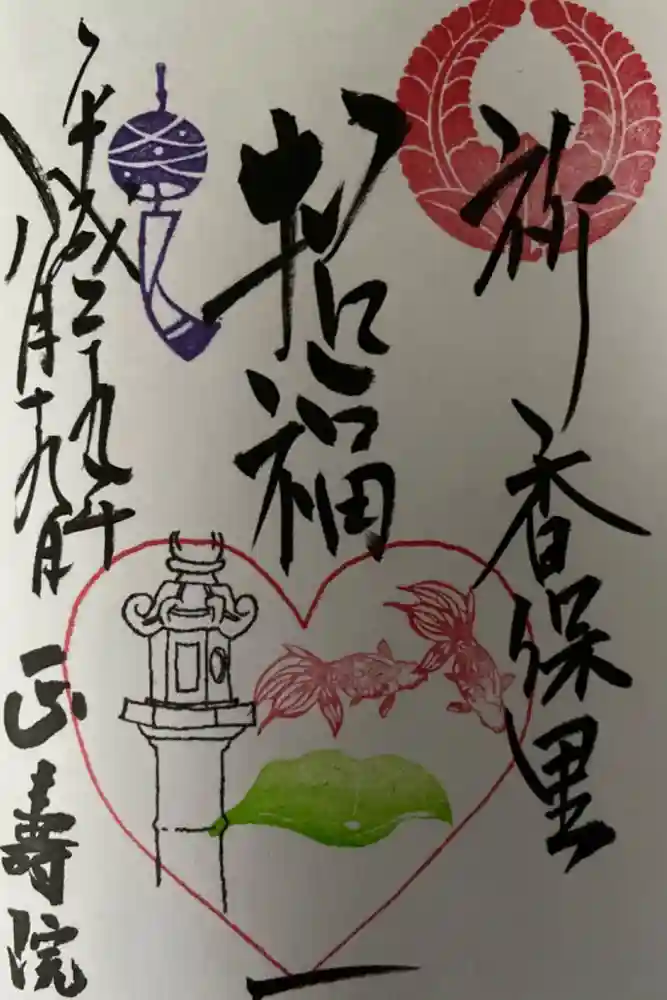 祈 香保里
招福
平成二十九年
八月十九日
正壽院